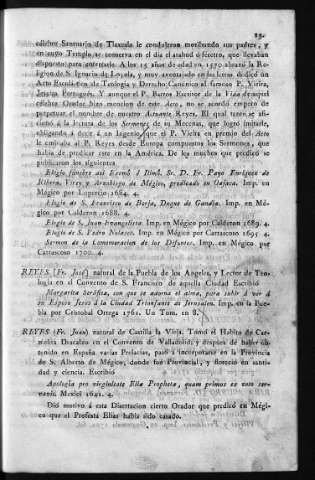 celebre Santuario de Tlaxcala le condujeron moribundo sus padres, y
en cuyo Templo se conserva en el dia el ataud ó feretro, que llevaban
dispuesto para enterrarlo. A los 15 años de edad en 1570 abrazó la Religion
de S. Ignacio de Loyola, y muy aventajado en las letras dedicó un
Acto Escolástico de Teología y Derecho Canonico al famoso P. Vieira,
Jesuita Portugués. Y aunque el P. Barros Escritor de la Vida de aquel
célebre Orador hizo mencion de este Acto, no se acordó empero de
perpetuar el nombre de nuestro Actuante Reyes. El qual tanto se aficionó
á la lectura de los Sermones de su Mecenas, que logró imitarle,
obligando á decir á un Ingenio, que el P. Vieira en premio del Acto
le embiaba al P. Reyes desde Europa compuestos los Sermones, que
había de predicar este en la América. De los muchos que predicó se
publicaron los siguientes
Elogio fúnebre del Excmô é Illmô. Sr. D. Fr. Payo Enriquez de
Ribera, Virey y Arzobispo de Mégico, predicado en Oajaca. Imp. en
Mégico por Lupercio 1684. 4.
Elogio de S. Francisco de Borja, Duque de Gandia. Imp. en Mégico
por Calderon 1688. 4.
Elogio de S. Juan Evangelista. Imp. en Mégico por Calderon 1689. 4.
Elogio de S. Pedro Nolasco. Imp. en Mégico por Carrascoso 1695. 4.
Sermon de la Conmemoracion de los Difuntos. Imp. en Mégico por
Carrascoso 1700. 4.
REYES (Fr. José) natural de la Puebla de los Angeles, y Lector de Teología
en el Convento de S. Francisco de aquella Ciudad Escribió
Margarita Seráfica, con que se adorna el alma, para subir á ver á
su Esposo Jesus á la Ciudad Triunfante de Jerusalen. Imp. en la Puebla
por Cristobal Ortega 1761. Un Tom. en 8.
REYES (Fr. Juan) natural de Castilla la Vieja. Tomó el Habito de Carmelita
Descalzo en el Convento de Valladolid; y despues de haber obtenido
en España varias Prelacias, pasó á incorporarse en la Provincia
de S. Alberto de Mégico, donde fue Provincial, y floreció en santidad
y ciencia. Escribió
Apologia pro virginitate Eliæ Prophetæ, quam primos ex voto servavit.
Mexici 1621. 4.
Dió motivo á esta Disertacion cierto Orador que predicó en Mégico
que el Profeta Elias habia sido casado.